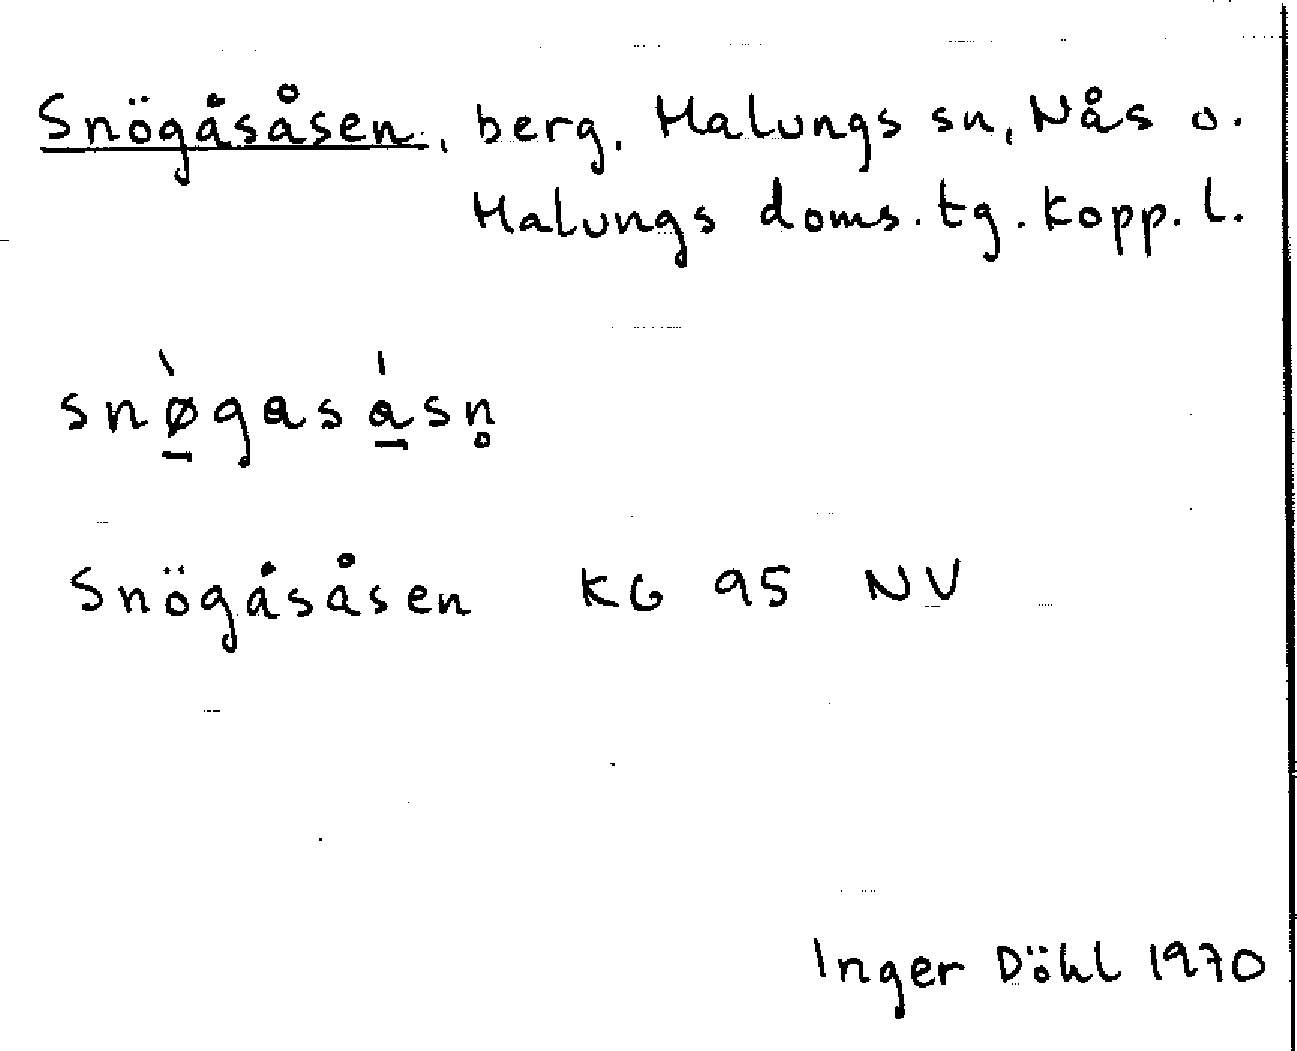 Snögåsåsen, berg, Malungs sn, Nås o.
Malungs doms. tg. Kopp. l.
snø̱̀gasá̱sn̥
Snögåsåsen KG 95 NV
Inger Döhl 1970